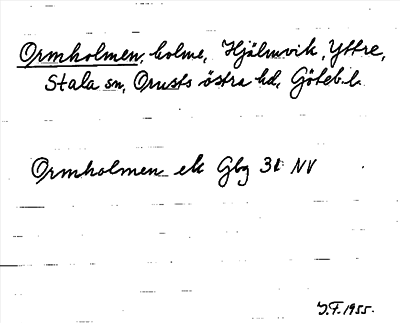 Ormholmen, holme, Hjälmvik, Yttre,
Stala sn, Orusts östra hd, Göteb. l.
Ormholmen ek Gbg 38 NV
J.F. 1955.